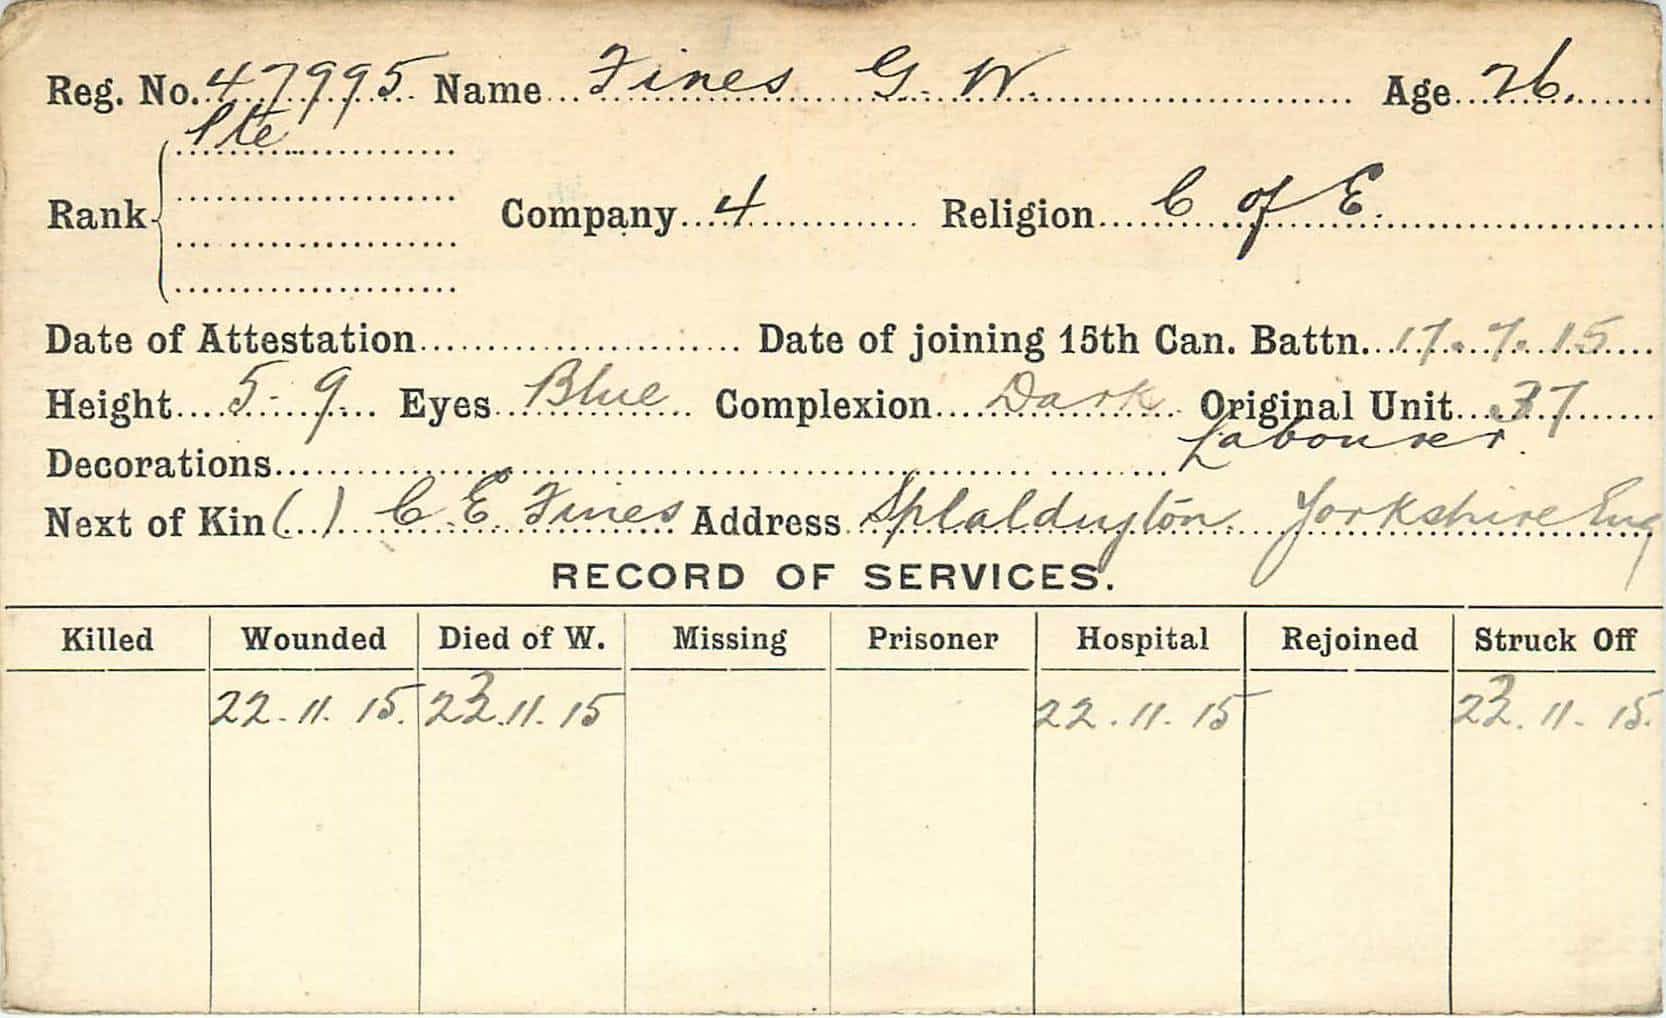 Reg. No. 47995 Name Fines G. W. Age 26.
Pte
Rank Company 4 Religion C of E.
Date of Attestation Date of joining 15th Can. Battn. 17.7.15
Height 5-9. Eyes Blue Complexion Dark Original Unit 37
Decorations Labourer.
Next of Kin ( ) C. E. Fines Address Splaldington. Yorkshire Eng
RECORD OF SERVICES.
Killed Wounded Died of W. Missing Prisoner Hospital Rejoined Struck Off
22-11.15. 23.11.15 22.11.15 23.11-15.